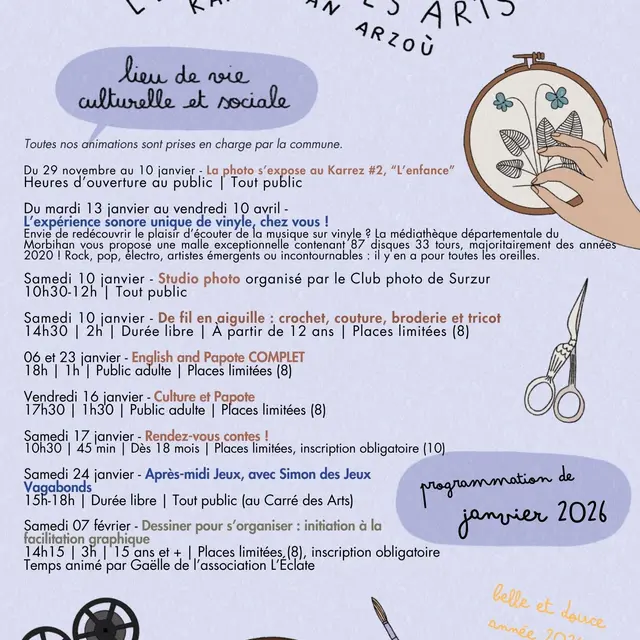 ES ARTS
AN ARZOÙ
lieu de vie
culturelle et sociale
Toutes nos animations sont prises en charge par la commune.
Du 29 novembre au 10 janvier - La photo s’expose au Karrez #2, “L’enfance”
Heures d’ouverture au public | Tout public
Du mardi 13 janvier au vendredi 10 avril -
L’expérience sonore unique de vinyle, chez vous !
Envie de redécouvrir le plaisir d’écouter de la musique sur vinyle ? La médiathèque départementale du
Morbihan vous propose une malle exceptionnelle contenant 87 disques 33 tours, majoritairement des années
2020 ! Rock, pop, électro, artistes émergents ou incontournables : il y en a pour toutes les oreilles.
Samedi 10 janvier - Studio photo organisé par le Club photo de Surzur
10h30-12h | Tout public
Samedi 10 janvier - De fil en aiguille : crochet, couture, broderie et tricot
14h30 | 2h | Durée libre | À partir de 12 ans | Places limitées (8)
06 et 23 janvier - English and Papote COMPLET
18h | 1h | Public adulte | Places limitées (8)
Vendredi 16 janvier - Culture et Papote
17h30 | 1h30 | Public adulte | Places limitées (8)
Samedi 17 janvier - Rendez-vous contes !
10h30 | 45 min | Dès 18 mois | Places limitées, inscription obligatoire (10)
Samedi 24 janvier - Après-midi Jeux, avec Simon des Jeux
Vagabonds
15h-18h | Durée libre | Tout public (au Carré des Arts)
programmation de
janvier 2026
Samedi 07 février - Dessiner pour s’organiser : initiation à la
facilitation graphique
14h15 | 3h | 15 ans et + | Places limitées (8), inscription obligatoire
Temps animé par Gaëlle de l’association L’Éclate
belle et douce
année